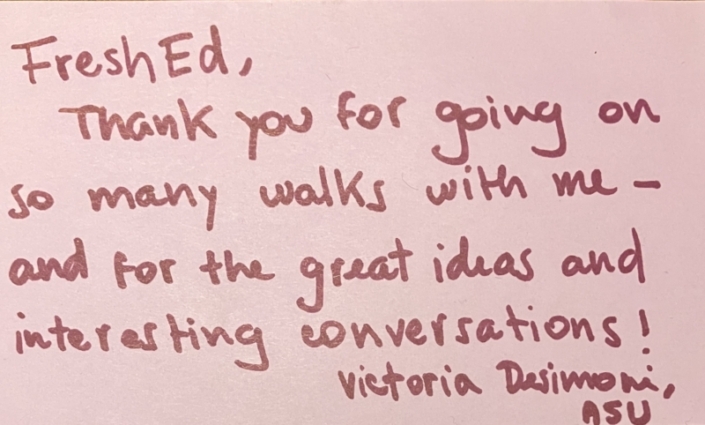 FreshEd,
Thank you for going on
so many walks with me –
and for the great ideas and
interesting conversations!
Victoria Desimoni,
ASU